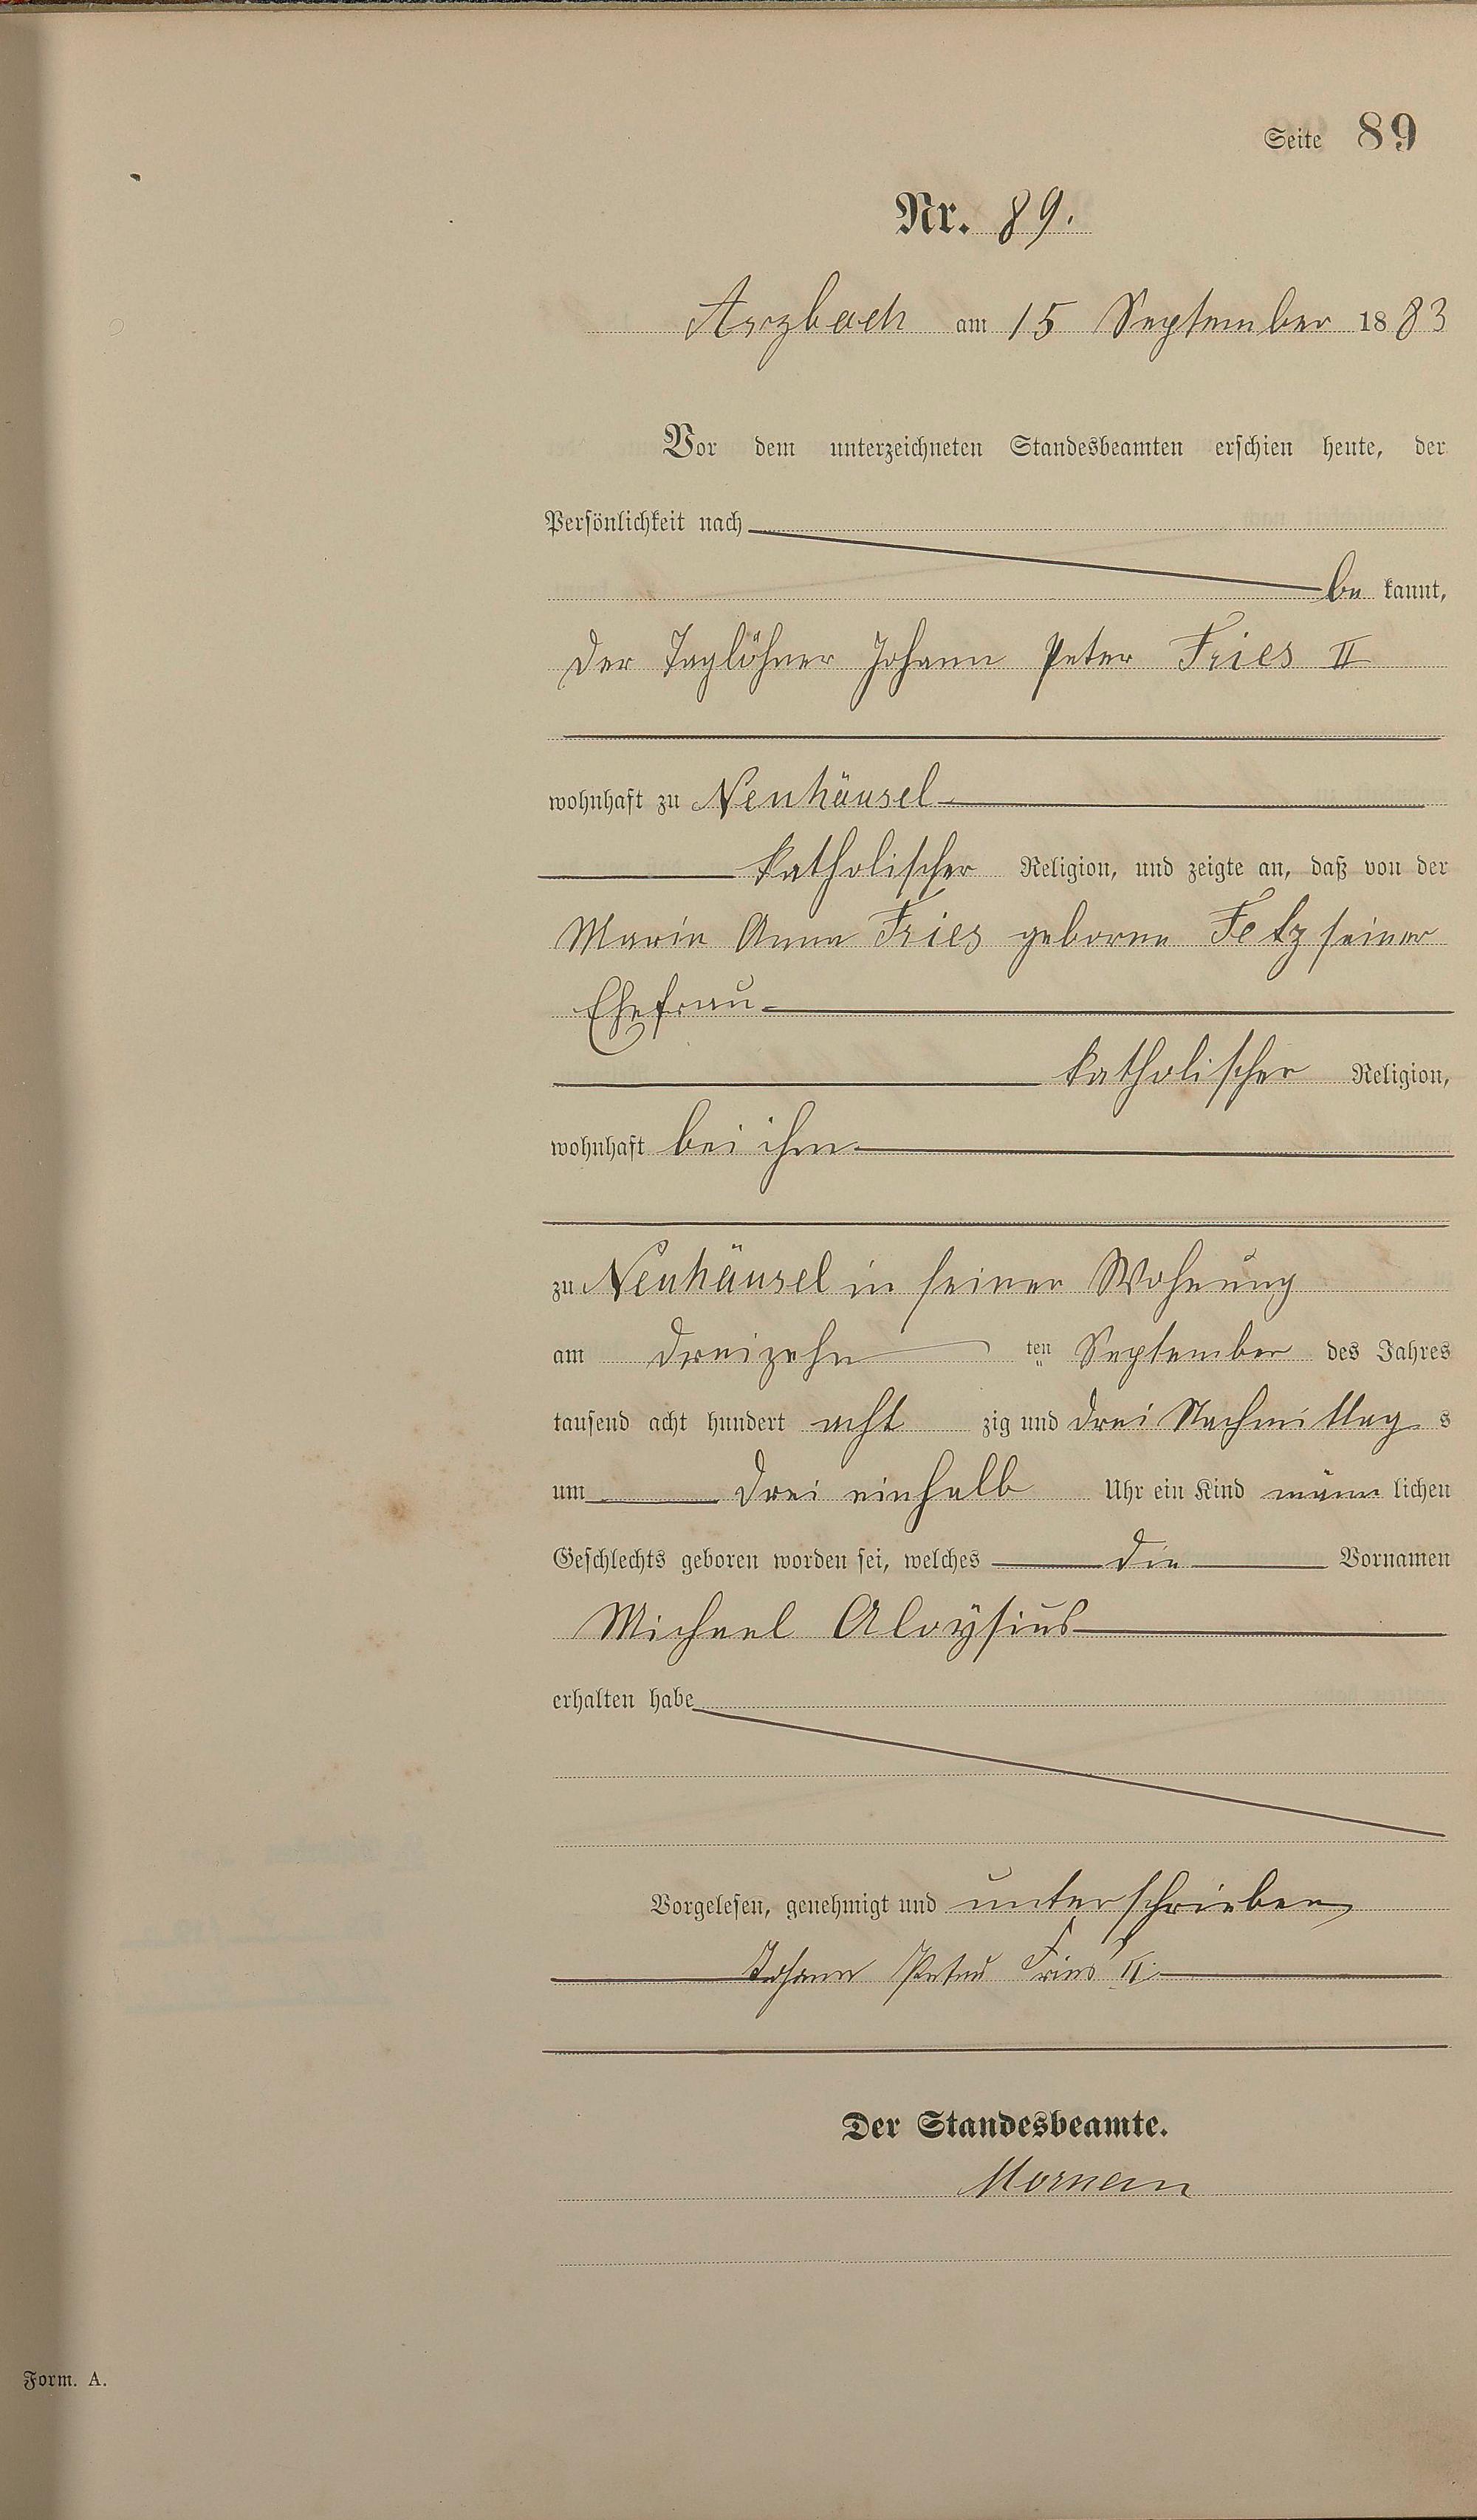 Seite 89
Nr. 89.
Arzbach am 15 September 1883
Vor dem unterzeichneten Standesbeamten erschien heute, der
Persönlichkeit nach
be kannt,
der Taglöhner Johann Peter Fries II
wohnhaft zu Neuhäusel
katholischer Religion, und zeigte an, daß von der
Maria Anna Fries geborne Fetz seiner
Ehefrau
katholischer Religion,
wohnhaft bei ihm
zu Neuhäusel in seiner Wohnung
am dreizehn ten September des Jahres
tausend acht hundert acht zig und drei Nachmittag s
um drei einhalb Uhr ein Kind männ lichen
Geschlechts geboren worden sei, welches die Vornamen
Michael Aloÿsius
erhalten habe
Vorgelesen, genehmigt und unterschrieben
Johann Peter Fries II.
Der Standesbeamte.
Form. A.